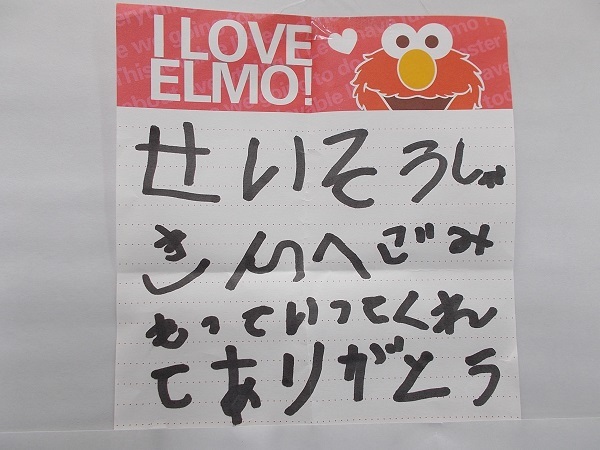 I LOVE
ELMO!
せいそうしゃ
さんへごみ
もっていってくれ
てありがとう